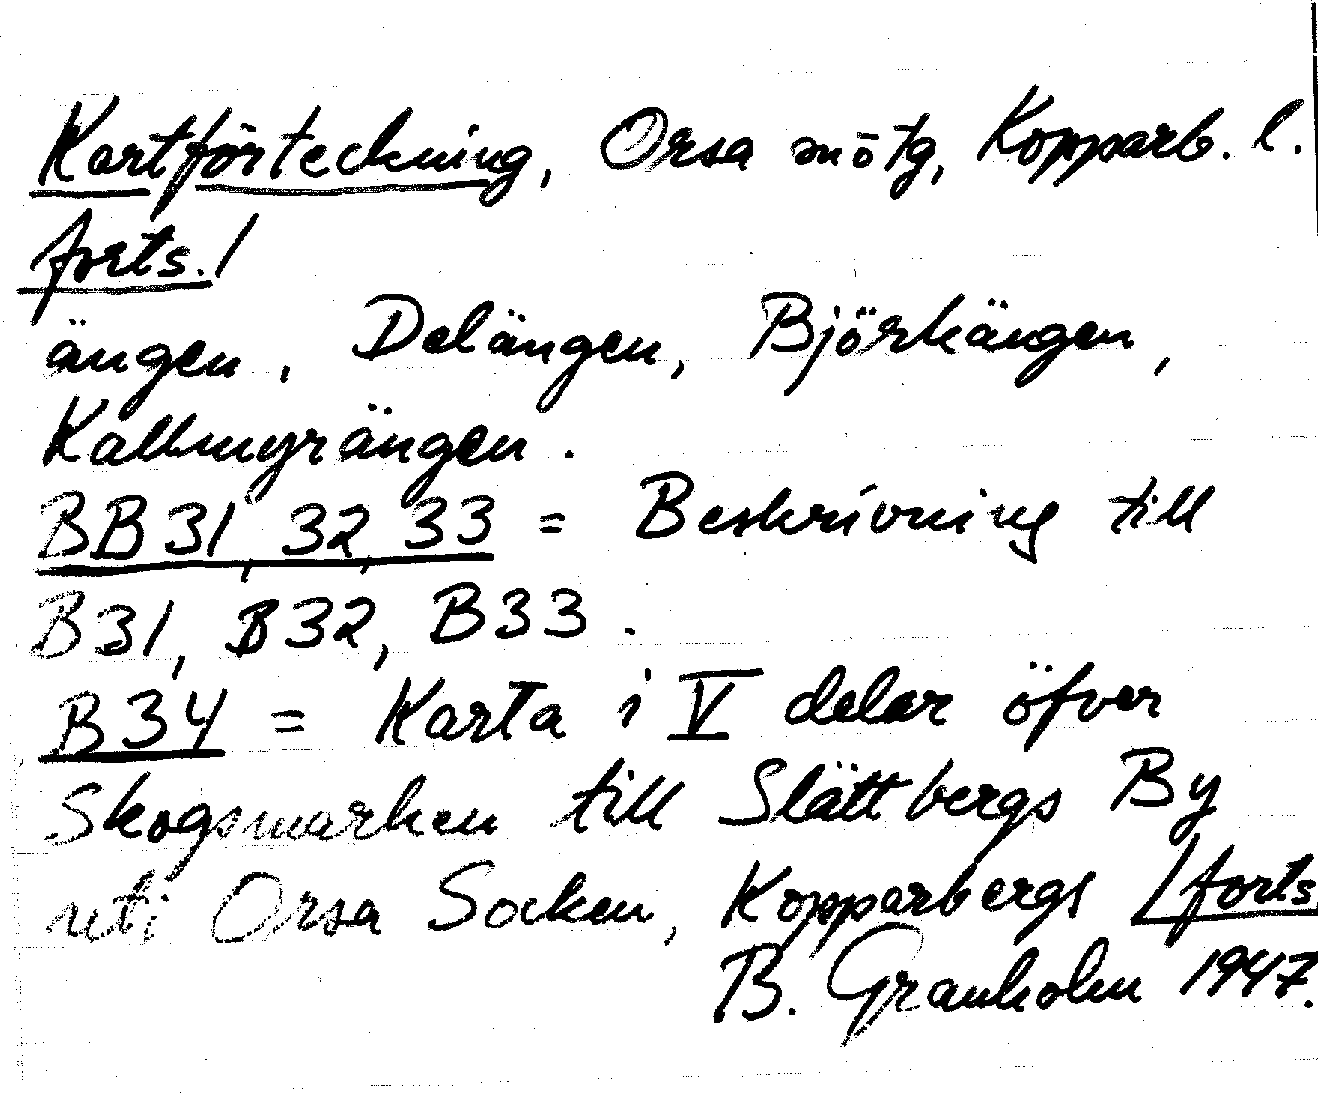 Kartförteckning, Orsa mötg, Kopparb. l.
forts./
ängen, Delängen, Björkängen,
Kallmyrängen.
BB31, 32, 33 = Beskrivning till
B31, B32, B33.
B34 = Karta i V delar öfver
Skogsmarken till Slättbergs By
uti Orsa Socken, Kopparbergs /forts.
B. Granholm 1947.